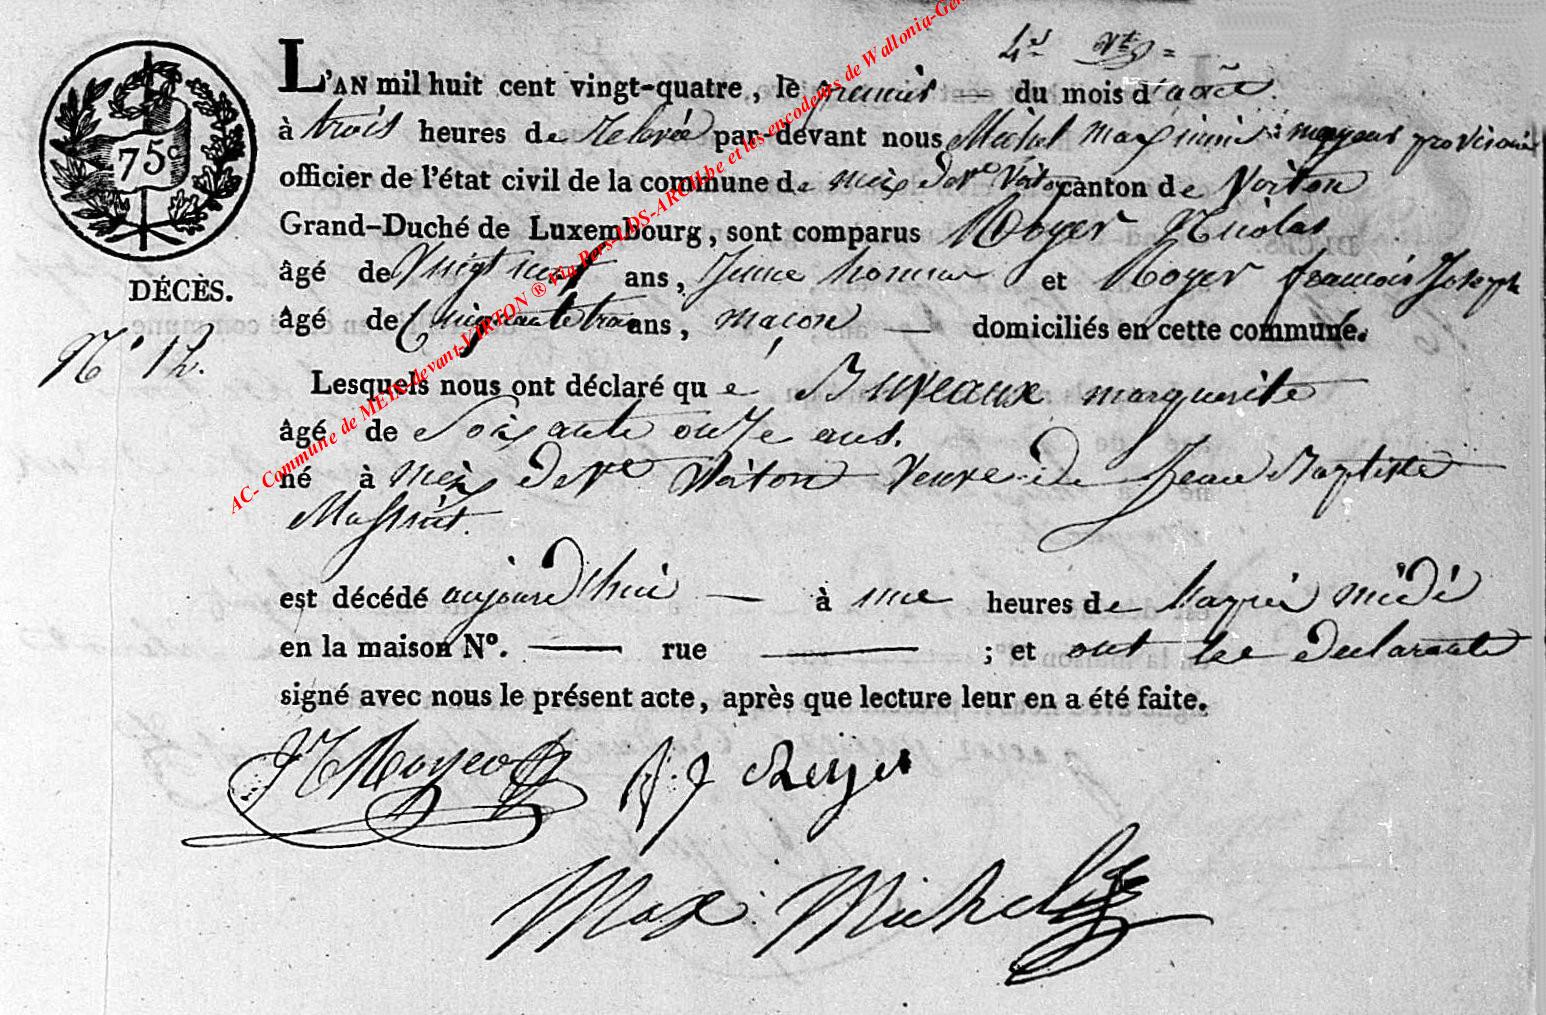 L'AN mil huit cent vingt-quatre, le premier du mois d'août
à trois heures de relevé par-devant nous Michel mayeur provisoire
officier de l'état civil de la commune de meix dvt Virton canton de Virton
Grand-Duché de Luxembourg, sont comparus Royer Nicolas
âgé de Vingt neuf ans, jeune homme et Royer francois Joseph
âgé de Cinquante trois ans, maçon domiciliés en cette commune.
Lesquels nous ont déclaré que Buveaux marguerite
âgé de Soixante onze ans.
né à meix devt Virton veuve de Jean Baptiste
est décédé aujourd'hui à une heures de l'après midi
en la maison No. rue ; et ont les declarants
signé avec nous le présent acte, après que lecture leur en a été faite.
75c
DÉCÈS.
No 12.
Max Michel
AC- Commune de MEIX-devant-VIRTON ® Via Pers-LDS-ARCH.be et les encodeurs de Wallonia-Ge